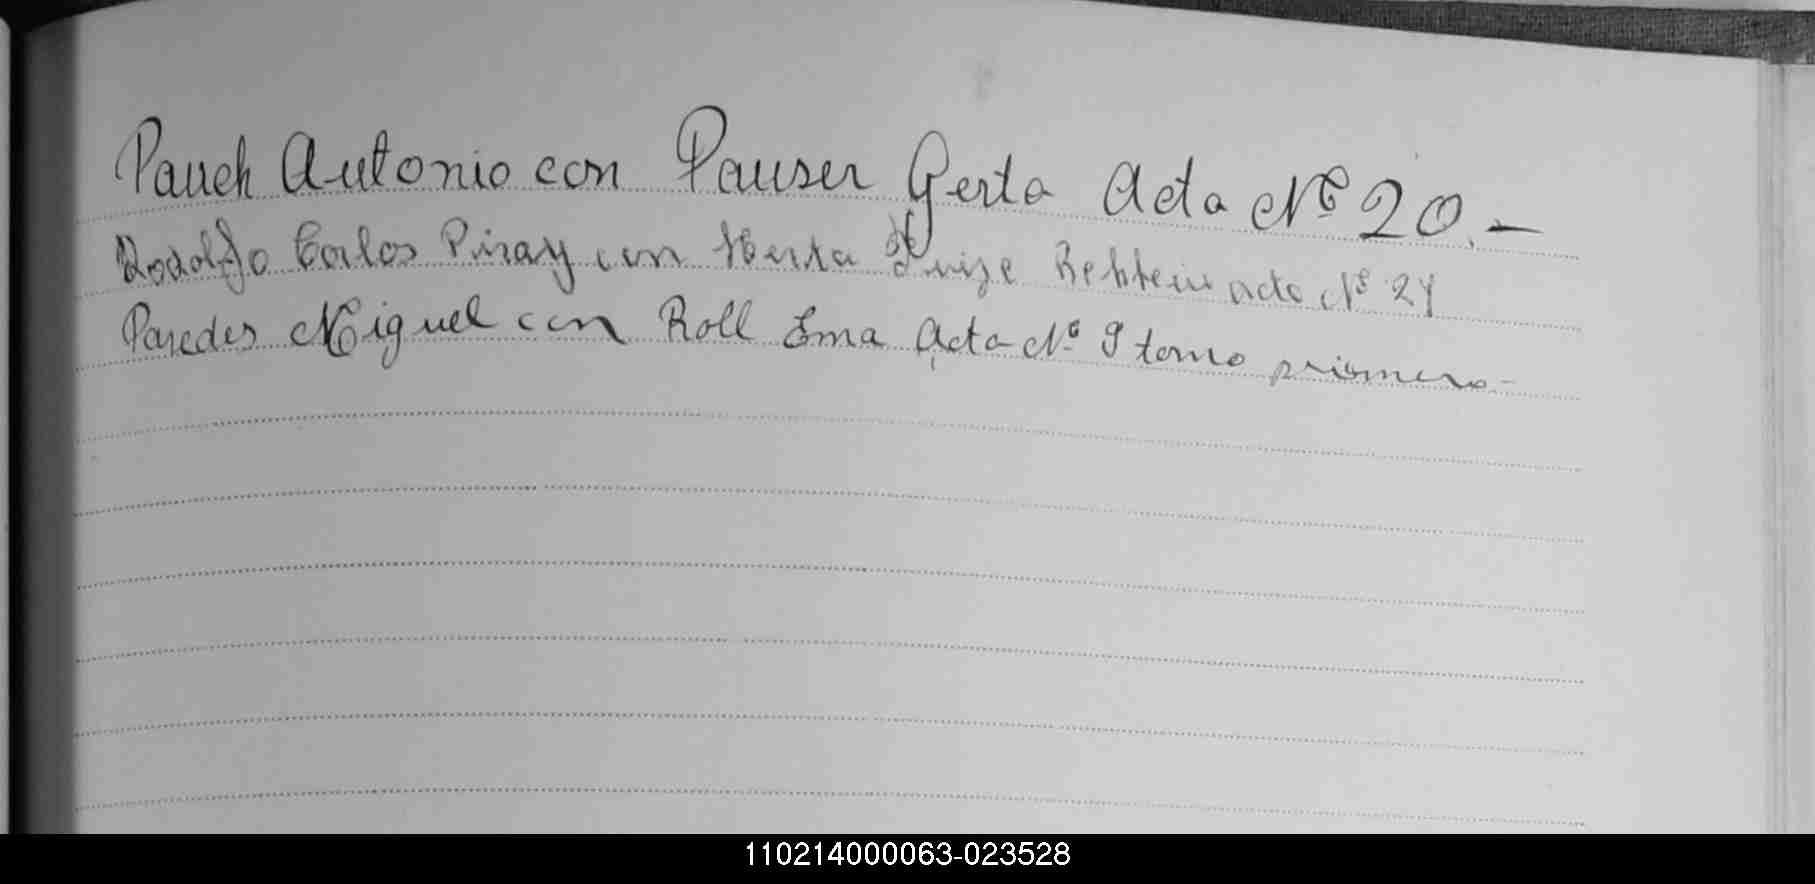 Pauch Antonio con Pauser Gerta Acta Nº 20.-
Rodolfo Carlos Piray con Herta Luise acta Nº 24
Paredes Miguel con Roll Ema Acta Nº 9 tomo primero.-
110214000063-023528